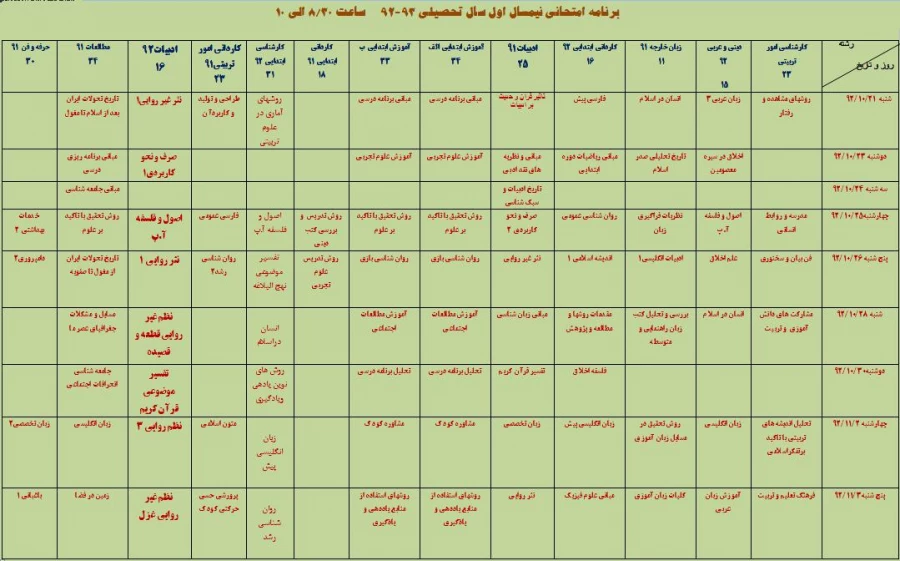 برنامه امتحانی نیمسال اول سال تحصیلی ۹۳-۹۲ ساعت ۸/۳۰ الی ۱۰
رشته
روز و تاریخ
کارشناسی امور تربیتی ۲۳
دینی و عربی ۹۲ ۱۵
زبان خارجه ۹۱ ۱۱
کاردانی ابتدایی ۹۲ ۱۶
ادبیات ۹۱ ۲۵
آموزش ابتدایی الف ۳۴
آموزش ابتدایی ب ۳۳
کاردانی ابتدایی ۹۱ ۱۸
کارشناسی ابتدایی ۹۲ ۳۱
کاردانی امور تربیتی ۹۱ ۲۳
ادبیات ۹۲ ۱۶
مطالعات ۹۱ ۳۴
حرفه و فن ۹۱ ۳۰
شنبه ۹۲/۱۰/۲۱
روشهای مشاهده و رفتار
زبان عربی ۳
انسان در اسلام
فارسی پیش
تاثیر قرآن و حدیث بر ادبیات
مبانی برنامه درسی
مبانی برنامه درسی
روشهای آماری در علوم تربیتی
طراحی و تولید و کاربرد آن
نثر غیر روایی۱
تاریخ تحولات ایران بعد از اسلام تا مغول
دوشنبه ۹۲/۱۰/۲۳
اخلاق در سیره معصومین
تاریخ تحلیلی صدر اسلام
مبانی ریاضیات دوره ابتدایی
مبانی و نظریه های نقد ادبی
آموزش علوم تجربی
آموزش علوم تجربی
صرف و نحو کاربردی۱
مبانی برنامه ریزی درسی
سه شنبه ۹۲/۱۰/۲۴
تاریخ ادبیات و سبک شناسی
مبانی جامعه شناسی
چهارشنبه ۹۲/۱۰/۲۵
مدرسه و روابط انسانی
اصول و فلسفه آ.پ
نظریات فراگیری زبان
روان شناسی عمومی
صرف و نحو کاربردی ۲
روش تحقیق با تاکید بر علوم
روش تحقیق با تاکید بر علوم
روش تدریس و بررسی کتب دینی
اصول و فلسفه آ.پ
فارسی عمومی
اصول و فلسفه آ.پ
روش تحقیق با تاکید بر علوم
خدمات بهداشتی ۲
پنج شنبه ۹۲/۱۰/۲۶
فن بیان و سخنوری
علم اخلاق
ادبیات انگلیسی۱
اندیشه اسلامی ۱
نثر غیر روایی
روان شناسی بازی
روان شناسی بازی
روش تدریس علوم تجربی
تفسیر موضوعی نهج البلاغه
روان شناسی رشد۲
نثر روایی ۱
تاریخ تحولات ایران از مغول تا صفویه
دامپروری۲
شنبه ۹۲/۱۰/۲۸
مشارکت های دانش آموزی و تربیت
انسان در اسلام
بررسی و تحلیل کتب زبان راهنمایی و متوسطه
مقدمات روشها و مطالعه و پژوهش
مبانی زبان شناسی
آموزش مطالعات اجتماعی
آموزش مطالعات اجتماعی
انسان در اسلام
نظم غیر روایی قطعه و قصیده
مسایل و مشکلات جغرافیای عصر ما
دوشنبه ۹۲/۱۰/۳۰
فلسفه اخلاق
تفسیر قرآن کریم
تحلیل برنامه درسی
تحلیل برنامه درسی
روش های نوین یاددهی و یادگیری
تفسیر موضوعی قرآن کریم
جامعه شناسی انحرافات اجتماعی
چهارشنبه ۹۲/۱۱/۲
تحلیل اندیشه های تربیتی با تاکید بر تفکر اسلامی
زبان انگلیسی
روش تحقیق در مسایل زبان آموزی
زبان انگلیسی پیش
زبان تخصصی
مشاوره کودک
مشاوره کودک
زبان انگلیسی پیش
متون اسلامی
نظم روایی ۳
زبان انگلیسی
زبان تخصصی۲
پنج شنبه ۹۲/۱۱/۳
فرهنگ تعلیم و تربیت
آموزش زبان عربی
کلیات زبان آموزی
مبانی علوم فیزیک
نثر روایی
روشهای استفاده از منابع یاددهی و یادگیری
روشهای استفاده از منابع یاددهی و یادگیری
روان شناسی رشد
پرورشی حسی حرکتی کودک
نظم غیر روایی غزل
زمین در فضا
باغبانی ۱